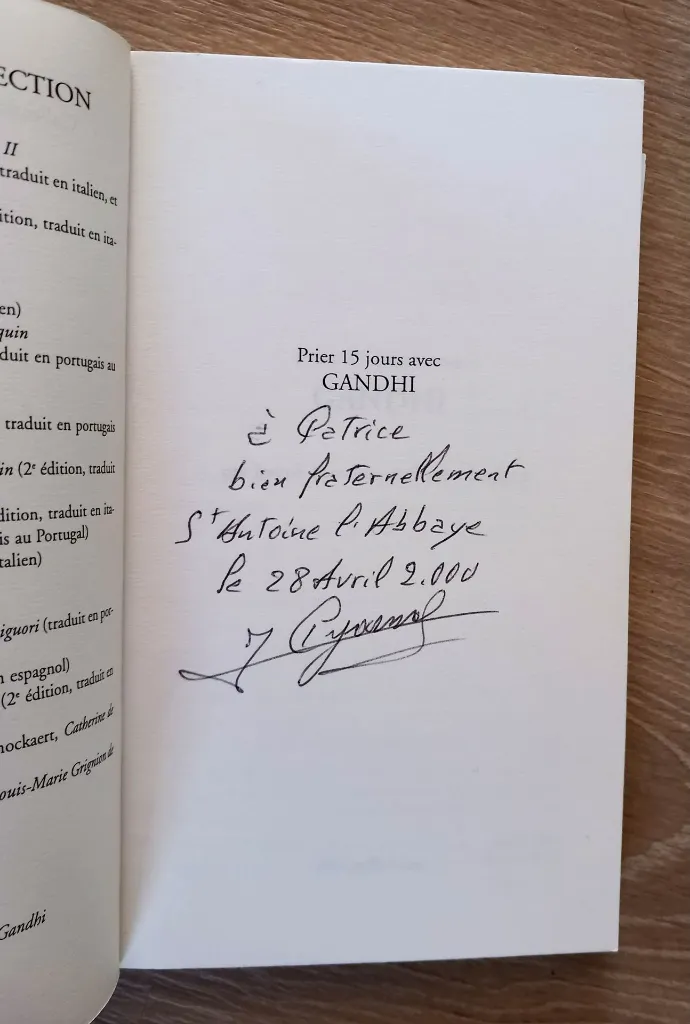 ECTION
II
traduit en italien, et
ition, traduit en ita-
en)
quin
duit en portugais au
traduit en portugais
in (2e édition, traduit
dition, traduit en ita-
is au Portugal)
talien)
iguori (traduit en por-
n espagnol)
(2e édition, traduit en
nockaert, Catherine de
ouis-Marie Grignion de
Gandhi
Prier 15 jours avec
GANDHI
à Patrice
bien fraternellement
St Antoine l'Abbaye
le 28 Avril 2.000